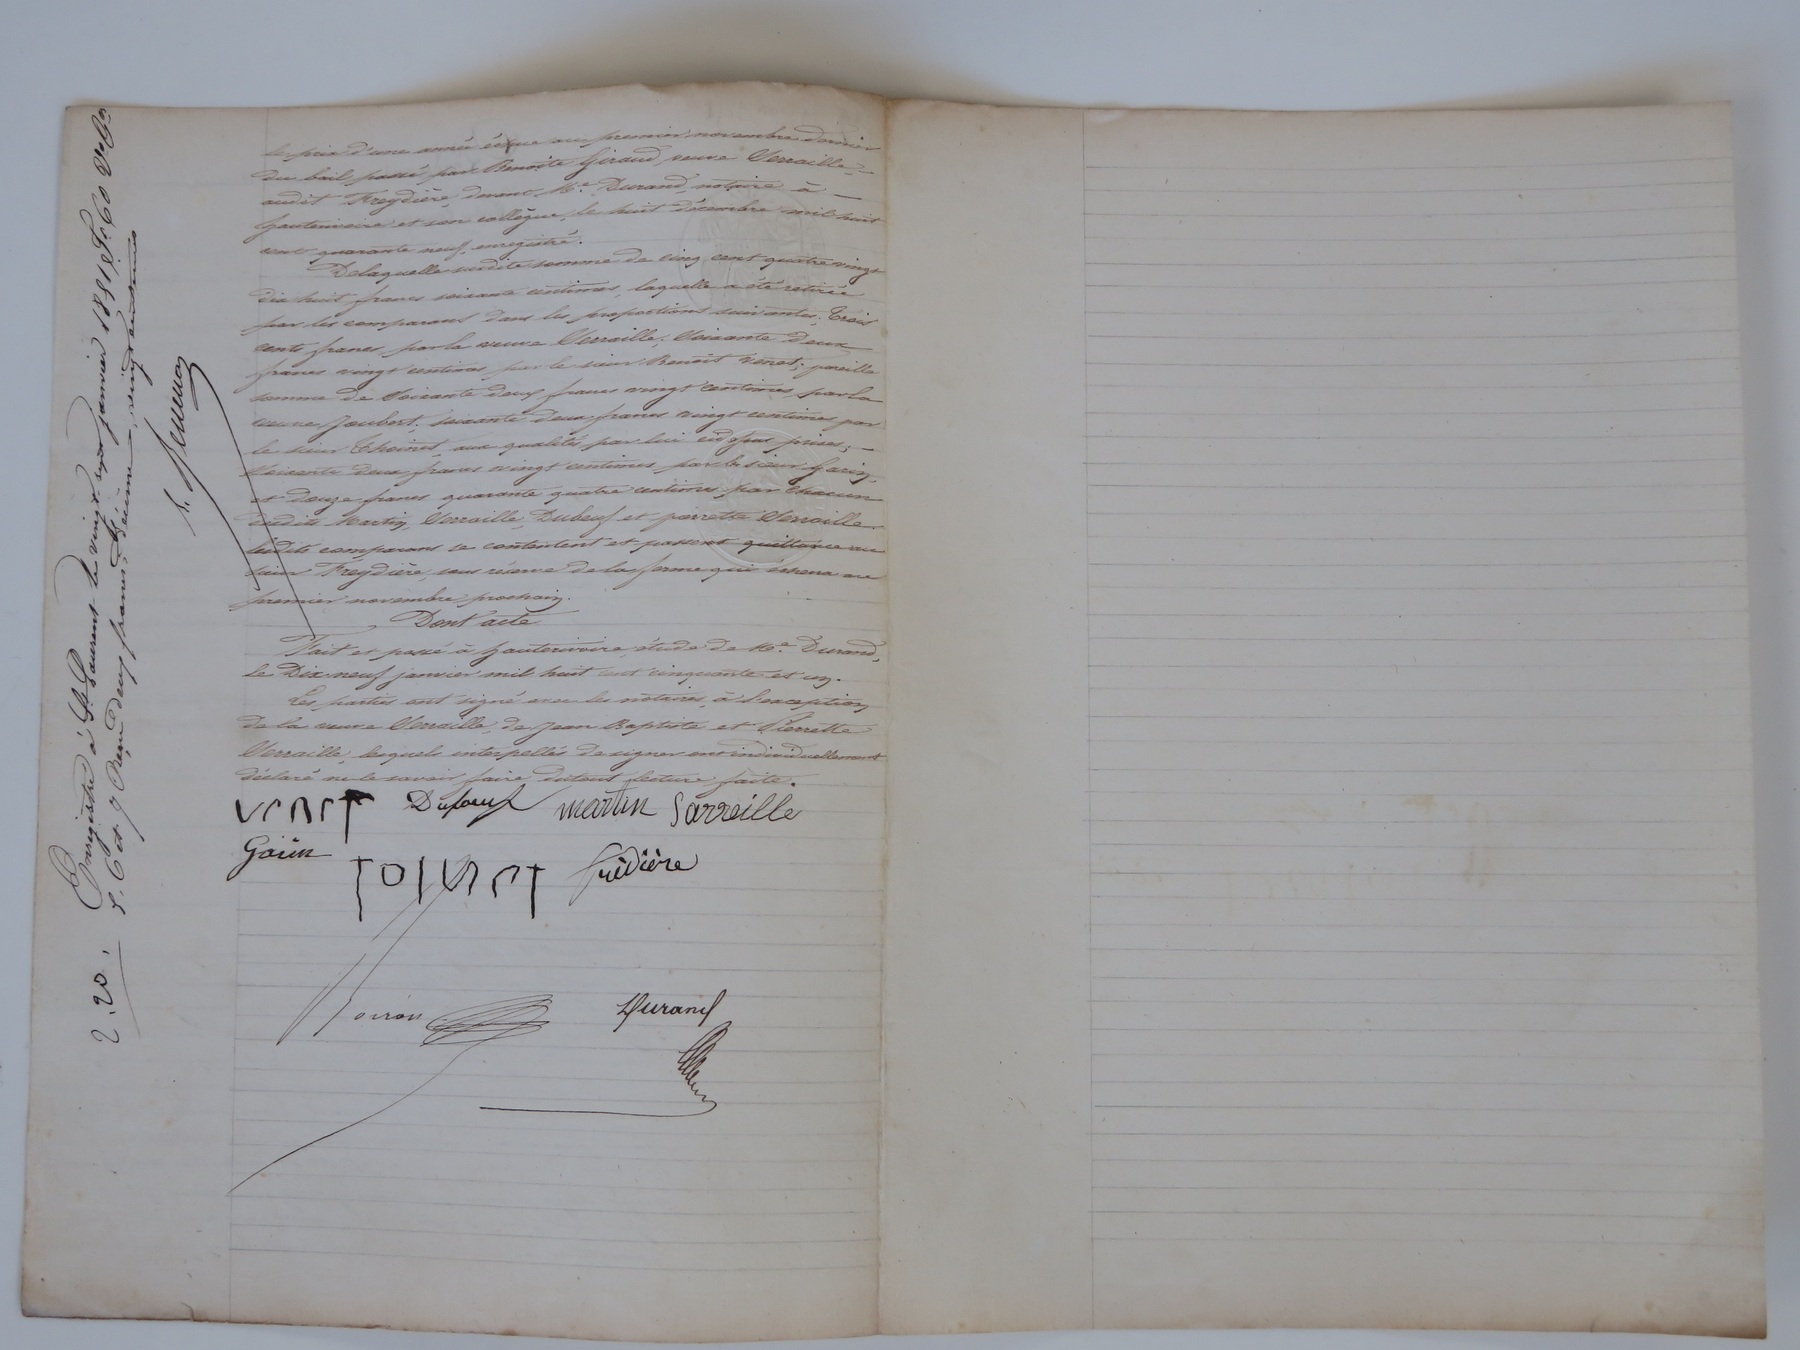 le prix d'une année échue au premier novembre dernier
du bail passé par Benoîte Giraud, veuve Verraille,
audit Freydière, devant Me Durand, notaire à
hauterivoire et son collègue, le huit décembre mil huit
cent quarante neuf, enregistré.
Delaquelle susdite somme de cinq cent quatre vingt
dix huit francs soixante centimes, laquelle a été retirée
par les comparans dans les proportions suivantes, Trois
cents francs par la veuve Verraille; Soixante deux
francs vingt centimes par le sieur Benoît Venet; pareille
somme de Soixante deux francs vingt centimes par la
veuve Joubert, soixante deux francs vingt centimes par
le sieur Thoinet, aux qualités par lui cidessus prises;
Soixante deux francs vingt centimes par le sieur Garin,
et douze francs quarante quatre centimes par chacun
desdits Martin, Verraille, Dubeuf et pierrette Verraille
lesdits comparans se contentent et passent quittance au
sieur Freydière, sous réserve de la ferme qui écherra au
premier novembre prochain.
Dont acte
Fait et passé à hauterivoire, étude de Me Durand,
le Dix neuf janvier mil huit cent cinquante et un.
Les parties ont signé avec les notaires, à l'exception
de la veuve Verraille, de Jean Baptiste et Pierrette
Verraille, lesquels interpellés de signer ont individuellement
déclaré ne le savoir faire, dutout lecture faite.
venet Dubeuf martin Sarreille
Garin toinet frédière
Durand
Enregistré à St Laurent le vingt janvier 1851 fo 60 Vo
c. 6 et 7 Reçu deux francs, décime vingt centimes
2.20